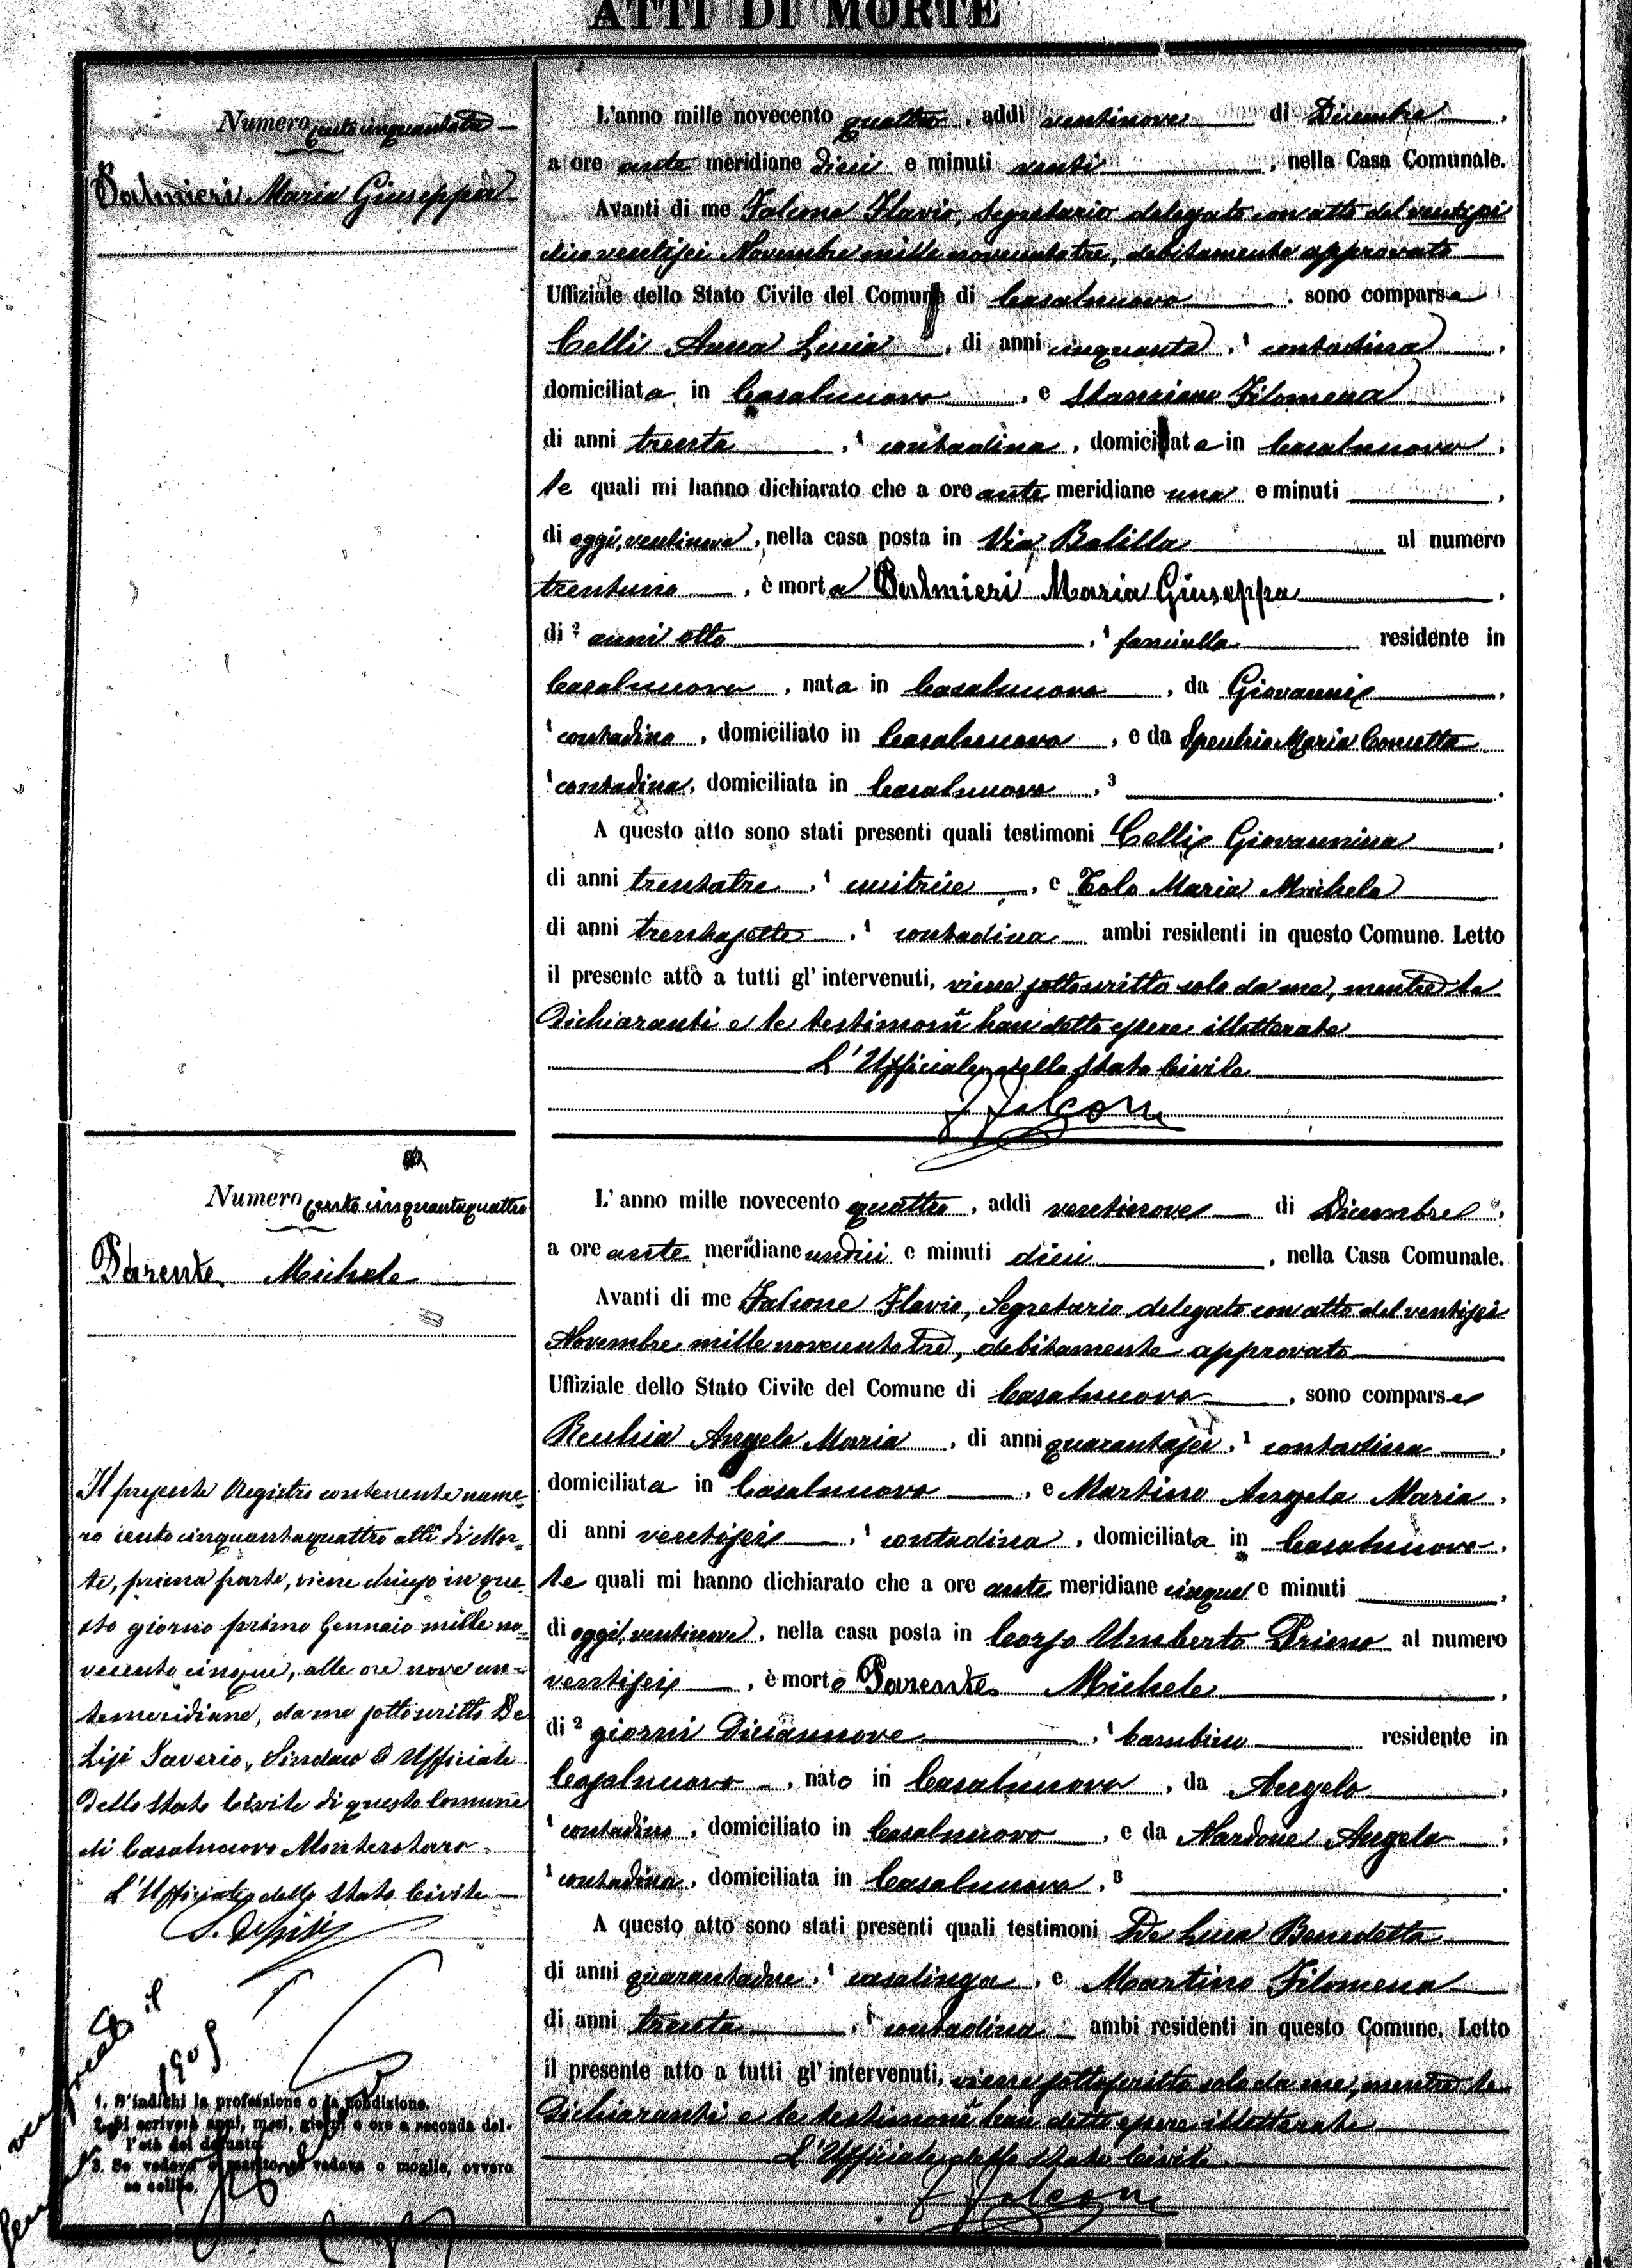 ATTI DI MORTE
Numero cento cinquantatre
Palmieri Maria Giuseppa
L'anno mille novecento quattro, addì ventinove di Dicembre,
a ore ante meridiane dieci e minuti venti, nella Casa Comunale.
Avanti di me Falcone Flavio, Segretario delegato con atto del ventisei
dico ventisei Novembre mille novecentotre, debitamente approvato
Uffiziale dello Stato Civile del Comune di Casalnuovo, sono comparse
Celli Anna Lucia, di anni cinquanta, ¹ contadina,
domiciliata in Casalnuovo, e Stanziano Filomena,
di anni trenta, ¹ contadina, domiciliata in Casalnuovo,
le quali mi hanno dichiarato che a ore ante meridiane una e minuti ,
di oggi, ventinove, nella casa posta in Via Balilla al numero
trentuno, è morta Palmieri Maria Giuseppa,
di ² anni otto, ¹ fanciulla residente in
Casalnuovo, nata in Casalnuovo, da Giovanni,
¹ contadino, domiciliato in Casalnuovo, e da Maria Concetta
¹ contadina, domiciliata in Casalnuovo, ³ .
A questo atto sono stati presenti quali testimoni Celli Giovannina,
di anni trentatre, ¹ cucitrice, e Tolo Maria Michela
di anni trentasette, ¹ contadina ambi residenti in questo Comune. Letto
il presente atto a tutti gl'intervenuti, viene sottoscritto solo da me, mentre le
dichiaranti e le testimonii han detto essere illetterate
L'Ufficiale dello Stato Civile
F Falcone
Numero cento cinquantaquattro
Parente Michele
L'anno mille novecento quattro, addì ventinove di Dicembre,
a ore ante meridiane undici e minuti dieci, nella Casa Comunale.
Avanti di me Falcone Flavio, Segretario delegato con atto del ventisei
Novembre mille novecentotre, debitamente approvato
Uffiziale dello Stato Civile del Comune di Casalnuovo, sono comparse
Recchia Angela Maria, di anni quarantasei, ¹ contadina,
domiciliata in Casalnuovo, e Martino Angela Maria,
di anni ventisei, ¹ contadina, domiciliata in Casalnuovo,
le quali mi hanno dichiarato che a ore ante meridiane cinque e minuti ,
di oggi, ventinove, nella casa posta in Corso Umberto Primo al numero
ventisei, è morto Parente Michele,
di ² giorni diciannove, ¹ bambino residente in
Casalnuovo, nato in Casalnuovo, da Angelo,
¹ contadino, domiciliato in Casalnuovo, e da Nardone Angela,
¹ contadina, domiciliata in Casalnuovo, ³ .
A questo atto sono stati presenti quali testimoni De Luca Benedetta
di anni quarantadue, ¹ casalinga, e Martino Filomena
di anni trenta, ¹ contadina ambi residenti in questo Comune. Letto
il presente atto a tutti gl'intervenuti, viene sottoscritto solo da me, mentre le
dichiaranti e le testimonii han detto essere illetterate
L'Ufficiale dello Stato Civile
F Falcone
Il presente Registro contenente nume-
ro cento cinquantaquattro atti di Mor-
te, prima parte, viene chiuso in que-
sto giorno primo Gennaio mille no-
vecento cinque, alle ore nove an-
temeridiane, da me sottoscritto De
Lisi Saverio, Sindaco ed Ufficiale
dello Stato Civile di questo Comune
di Casalnuovo Monterotaro.
L'Ufficiale dello Stato Civile
S. De Lisi
il
1905
1. S'indichi la professione o la condizione.
2. Si scriverà anni, mesi, giorni o ore a seconda del-
l'età del defunto.
3. Se vedovo o marito, se vedova o moglie, ovvero
se celibe.